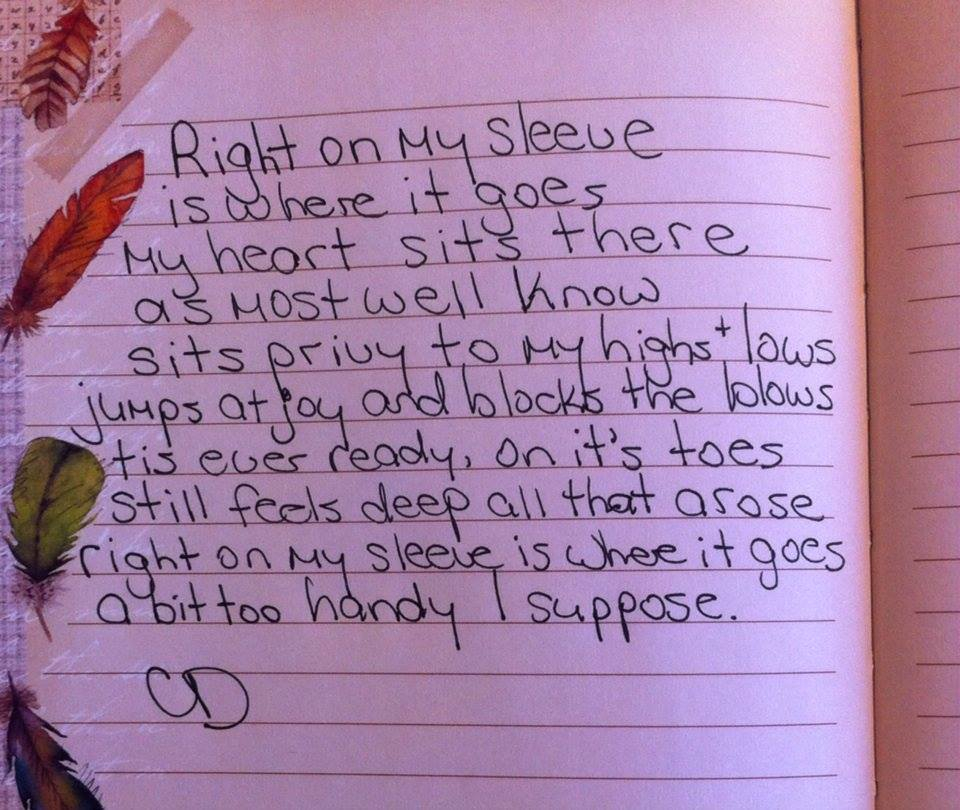 Right on My Sleeve
is where it goes
My heart sits there
as Most well know
sits privy to My highs + lows
jumps at joy and blocks the blows
tis ever ready, on it's toes
still feels deep all that arose
right on My sleeve is where it goes
a bit too handy I suppose.
CD